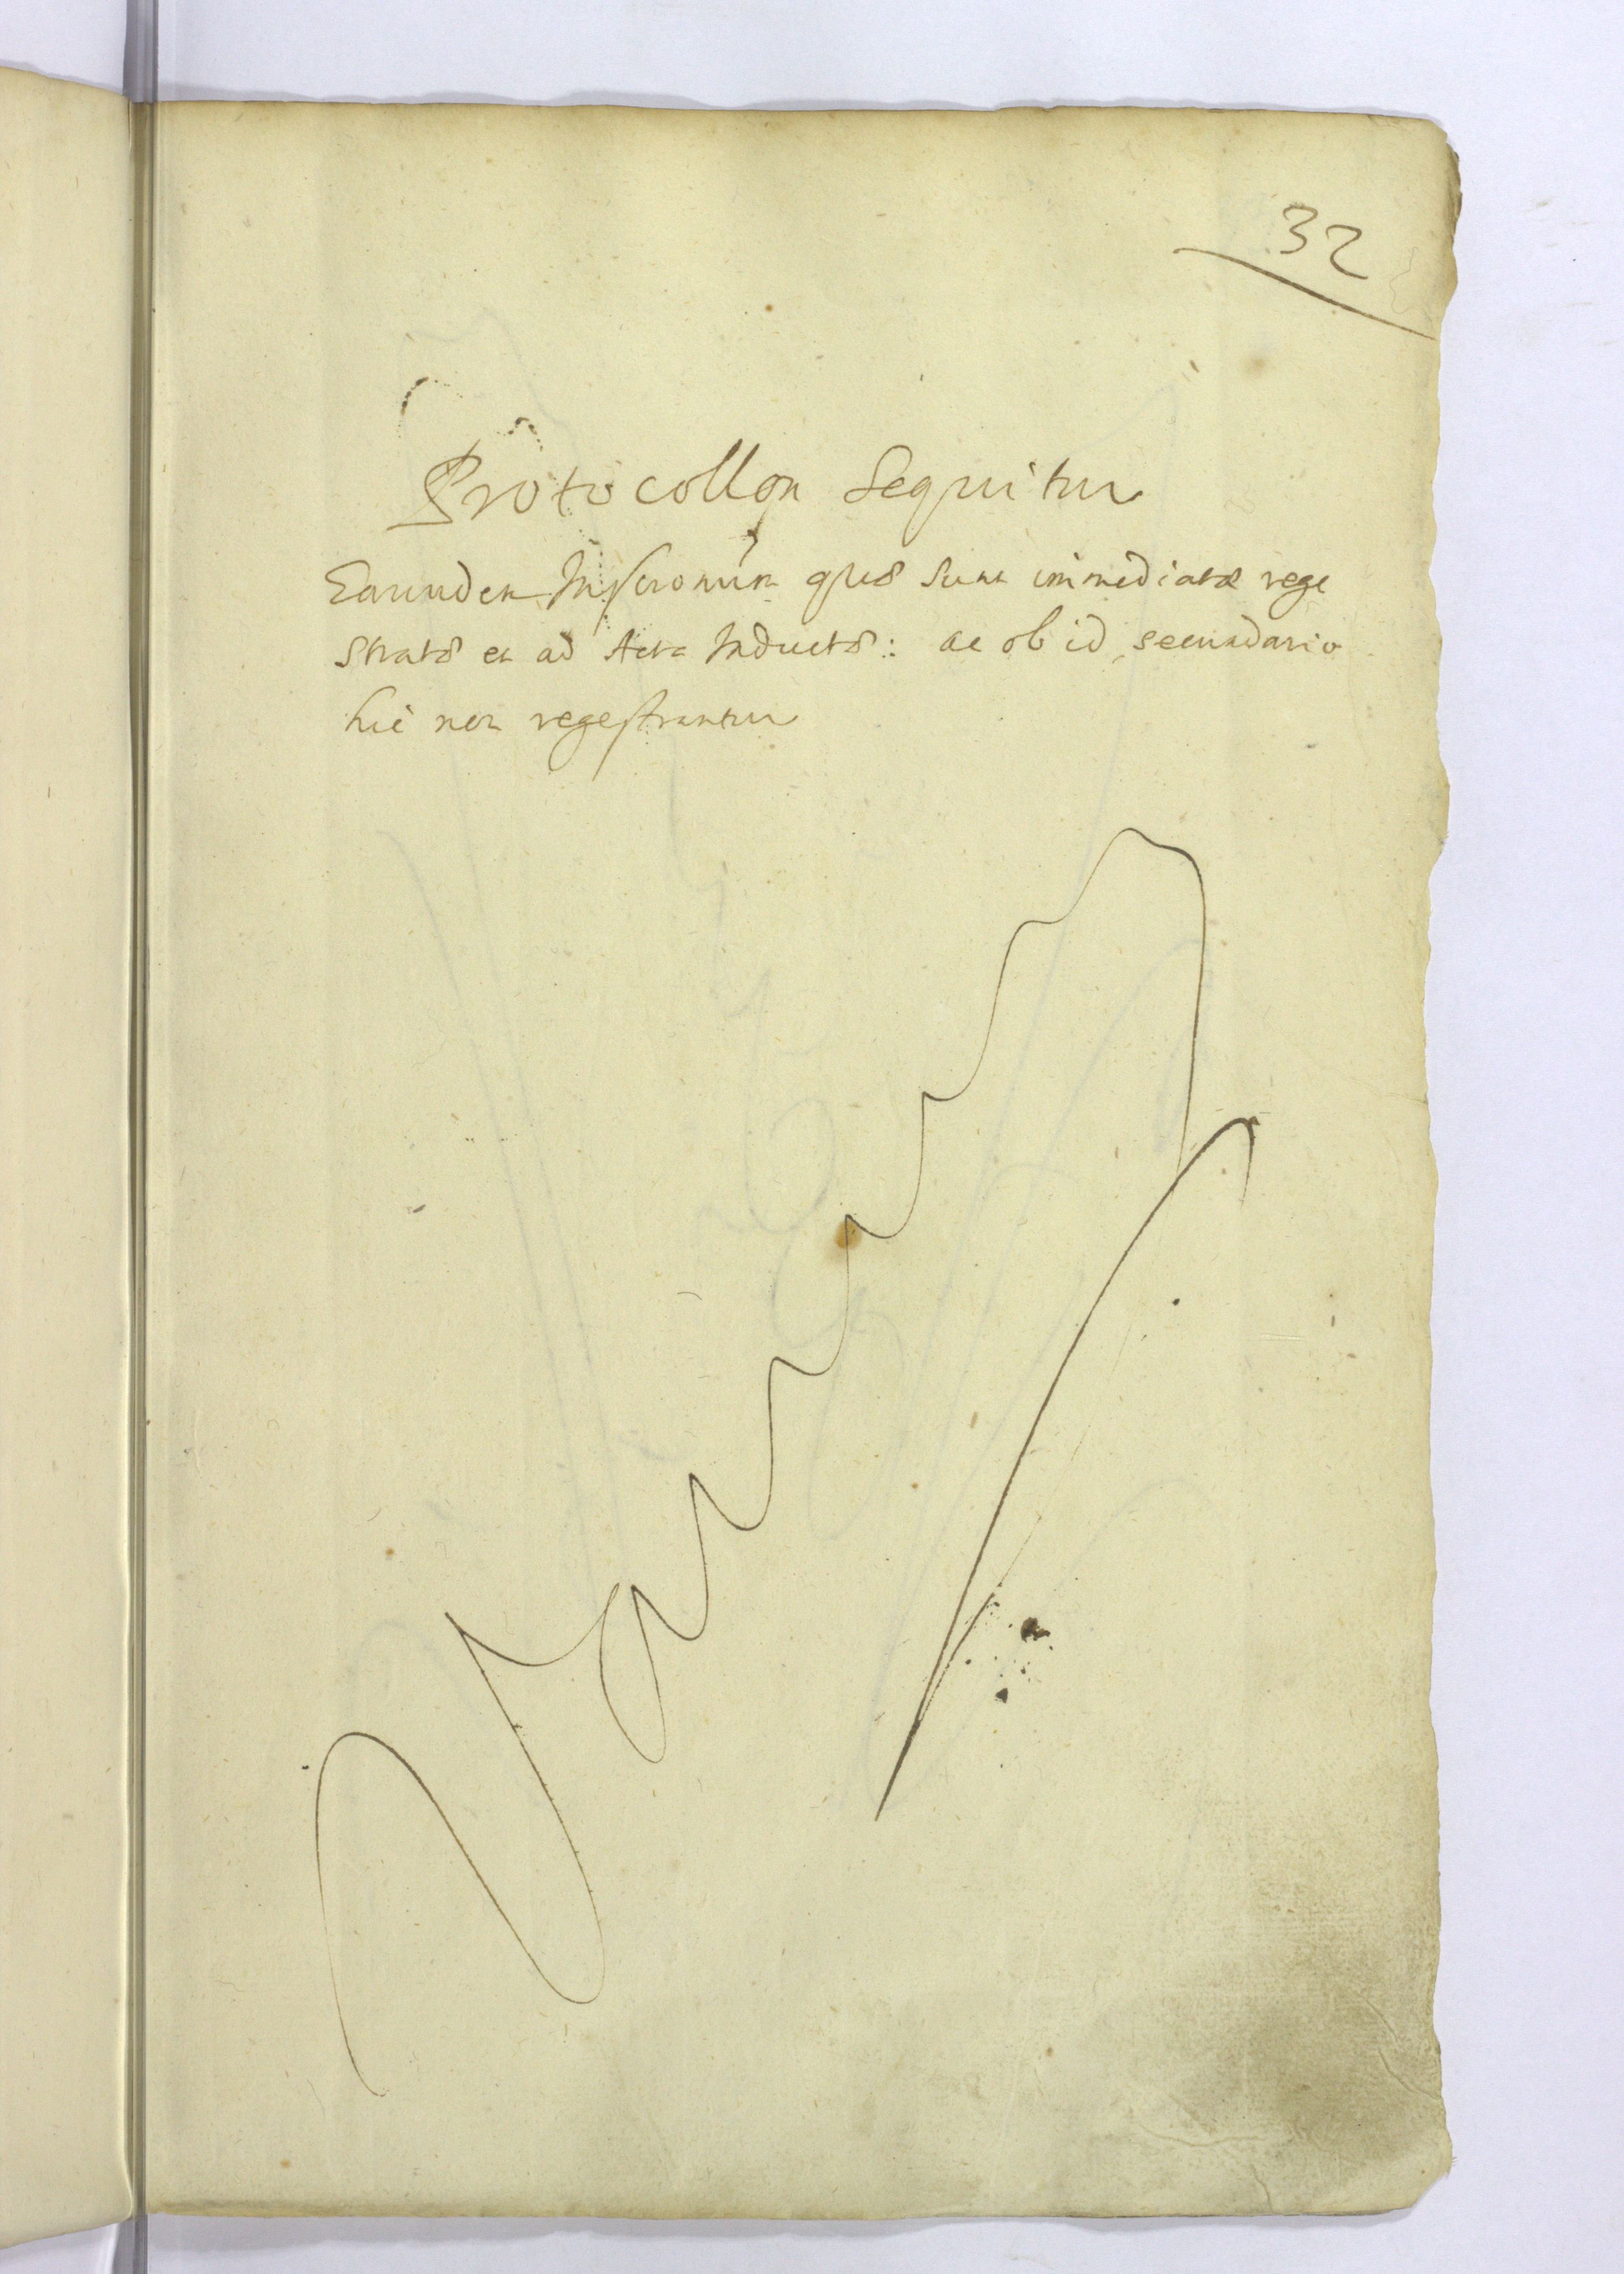 32
Protocollon Sequitur
Earundem Inscriptionum quae sunt immediatae rege
stratae et ad Acta Inductae: ac ob id secundario
hic non regestrantur
Vacat